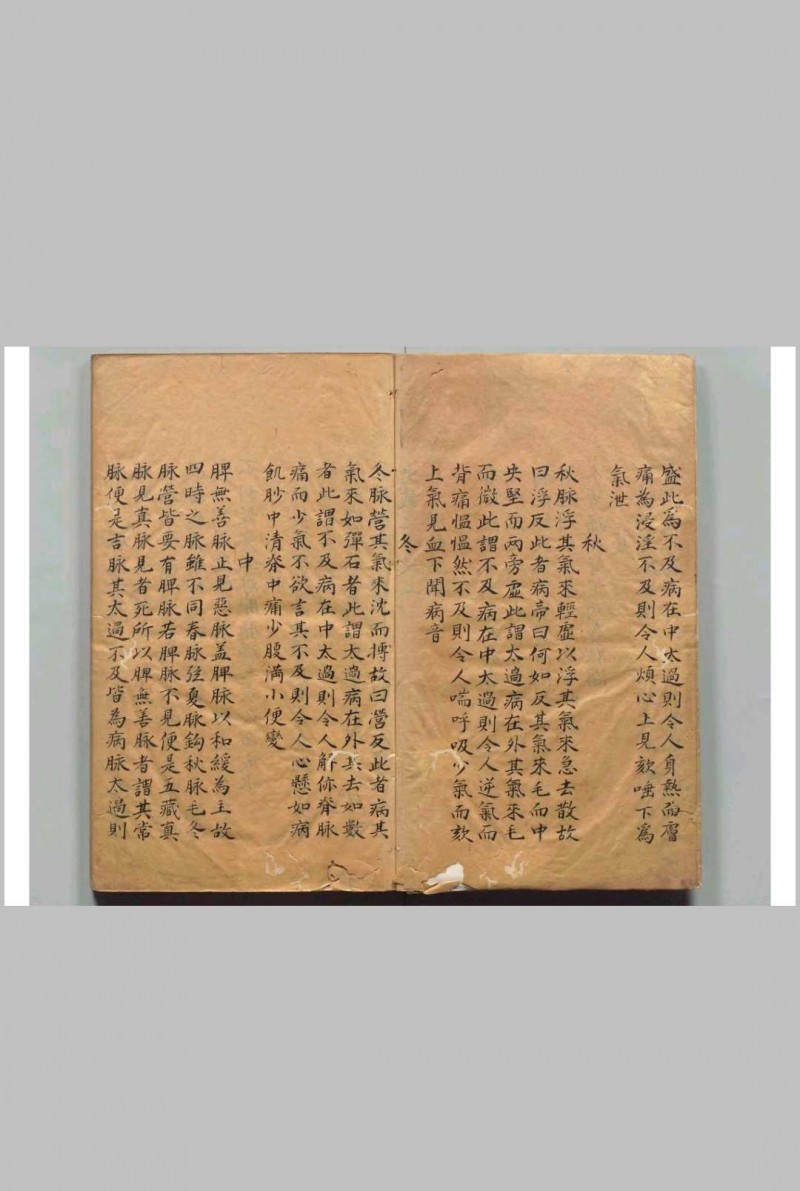 盛此為不及病在中太過則令人身熱而膚
痛為浸淫不及則令人煩心上見欬唾下為
氣泄
秋
秋脉浮其氣來輕虛以浮其氣來急去散故
曰浮反此者病帝曰何如反其氣來毛而中
央堅而兩旁虛此謂太過病在外其氣來毛
而微此謂不及病在中太過則令人逆氣而
背痛愠愠然不及則令人喘呼吸少氣而欬
上氣見血下聞病音
冬
冬脉營其氣來沈而搏故曰營反此者病其
氣來如彈石者此謂太過病在外其去如數
者此謂不及病在中太過則令人解㑊脊脉
痛而少氣不欲言其不及則令人心懸如病
飢䏚中清脊中痛少腹滿小便變
中
脾無善脉止見惡脉盖脾脉以和緩為主故
四時之脉雖不同春脉弦夏脉鈎秋脉毛冬
脉營皆要有脾脉若脾脉不見便是五藏真
脉見真脉見者死所以脾無善脉者謂其常
脉便是言脉其太過不及皆為病脉太過則